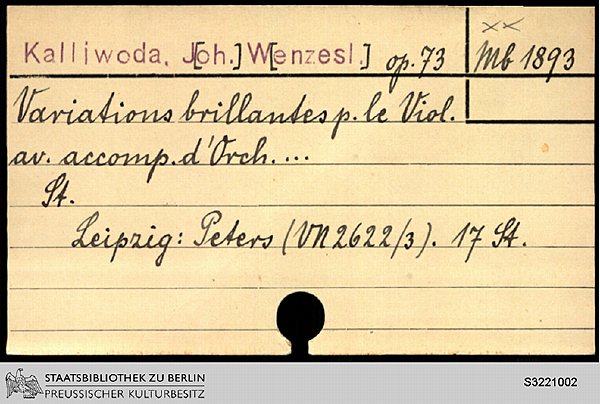 Kalliwoda, J[oh.] W[enzesl.] op. 73
×× Mb 1893
Variations brillantes p. le Viol.
av. accomp. d'Orch. ...
St.
Leipzig: Peters (VN 2622/3). 17 St.
STAATSBIBLIOTHEK ZU BERLIN
PREUSSISCHER KULTURBESITZ
S3221002